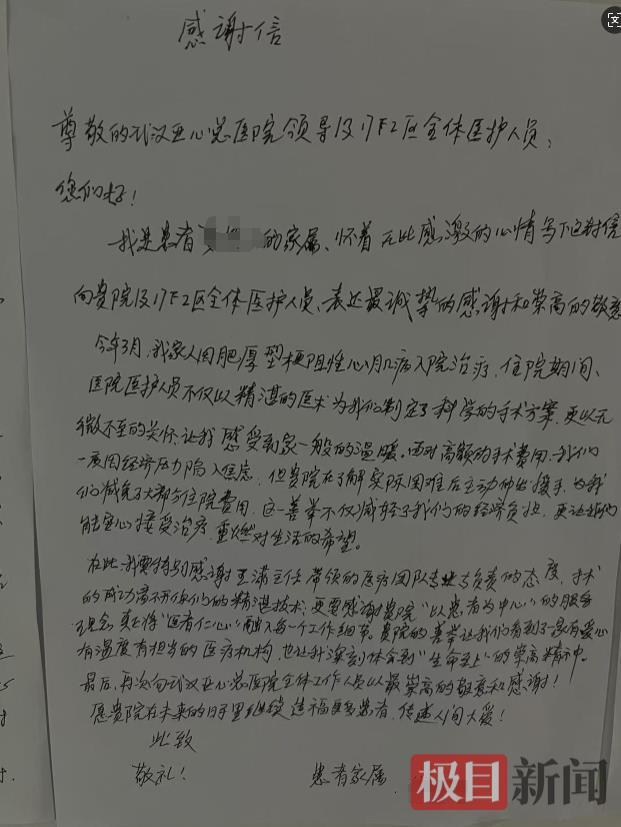 感谢信
尊敬的武汉亚心总医院领导及17F2区全体医护人员：
您们好！
我是患者的家属、怀着无比感激的心情写下这封信
向贵院及17F2区全体医护人员、表达最诚挚的感谢和崇高的敬意
今年3月，我家人因肥厚型梗阻性心肌病入院治疗，住院期间、
医院医护人员不仅以精湛的医术为我们制定了科学的手术方案，更以无
微不至的关怀让我感受到家一般的温暖。面对高额的手术费用，我们
一度因经济压力陷入焦虑，但贵院在了解实际困难后主动伸出援手，为我
们减免了大部分住院费用，这一善举不仅减轻了我们的经济负担，更让我们
能安心接受治疗，重燃对生活的希望。
在此，我要特别感谢主任带领的医疗团队专业与负责的态度，手术
的成功离不开你们的精湛技术；更要感谢贵院“以患者为中心”的服务
理念，真正将“医者仁心”融入每一个工作细节。贵院的善举让我们看到了一所有爱心
有温度有担当的医疗机构，也让我深刻体会到“生命至上”的崇高精神。
最后，再次向武汉亚心总医院全体工作人员以最崇高的敬意和感谢！
愿贵院在未来的日子里继续造福更多患者，传递人间大爱！
此致
敬礼！
患者家属
极目新闻